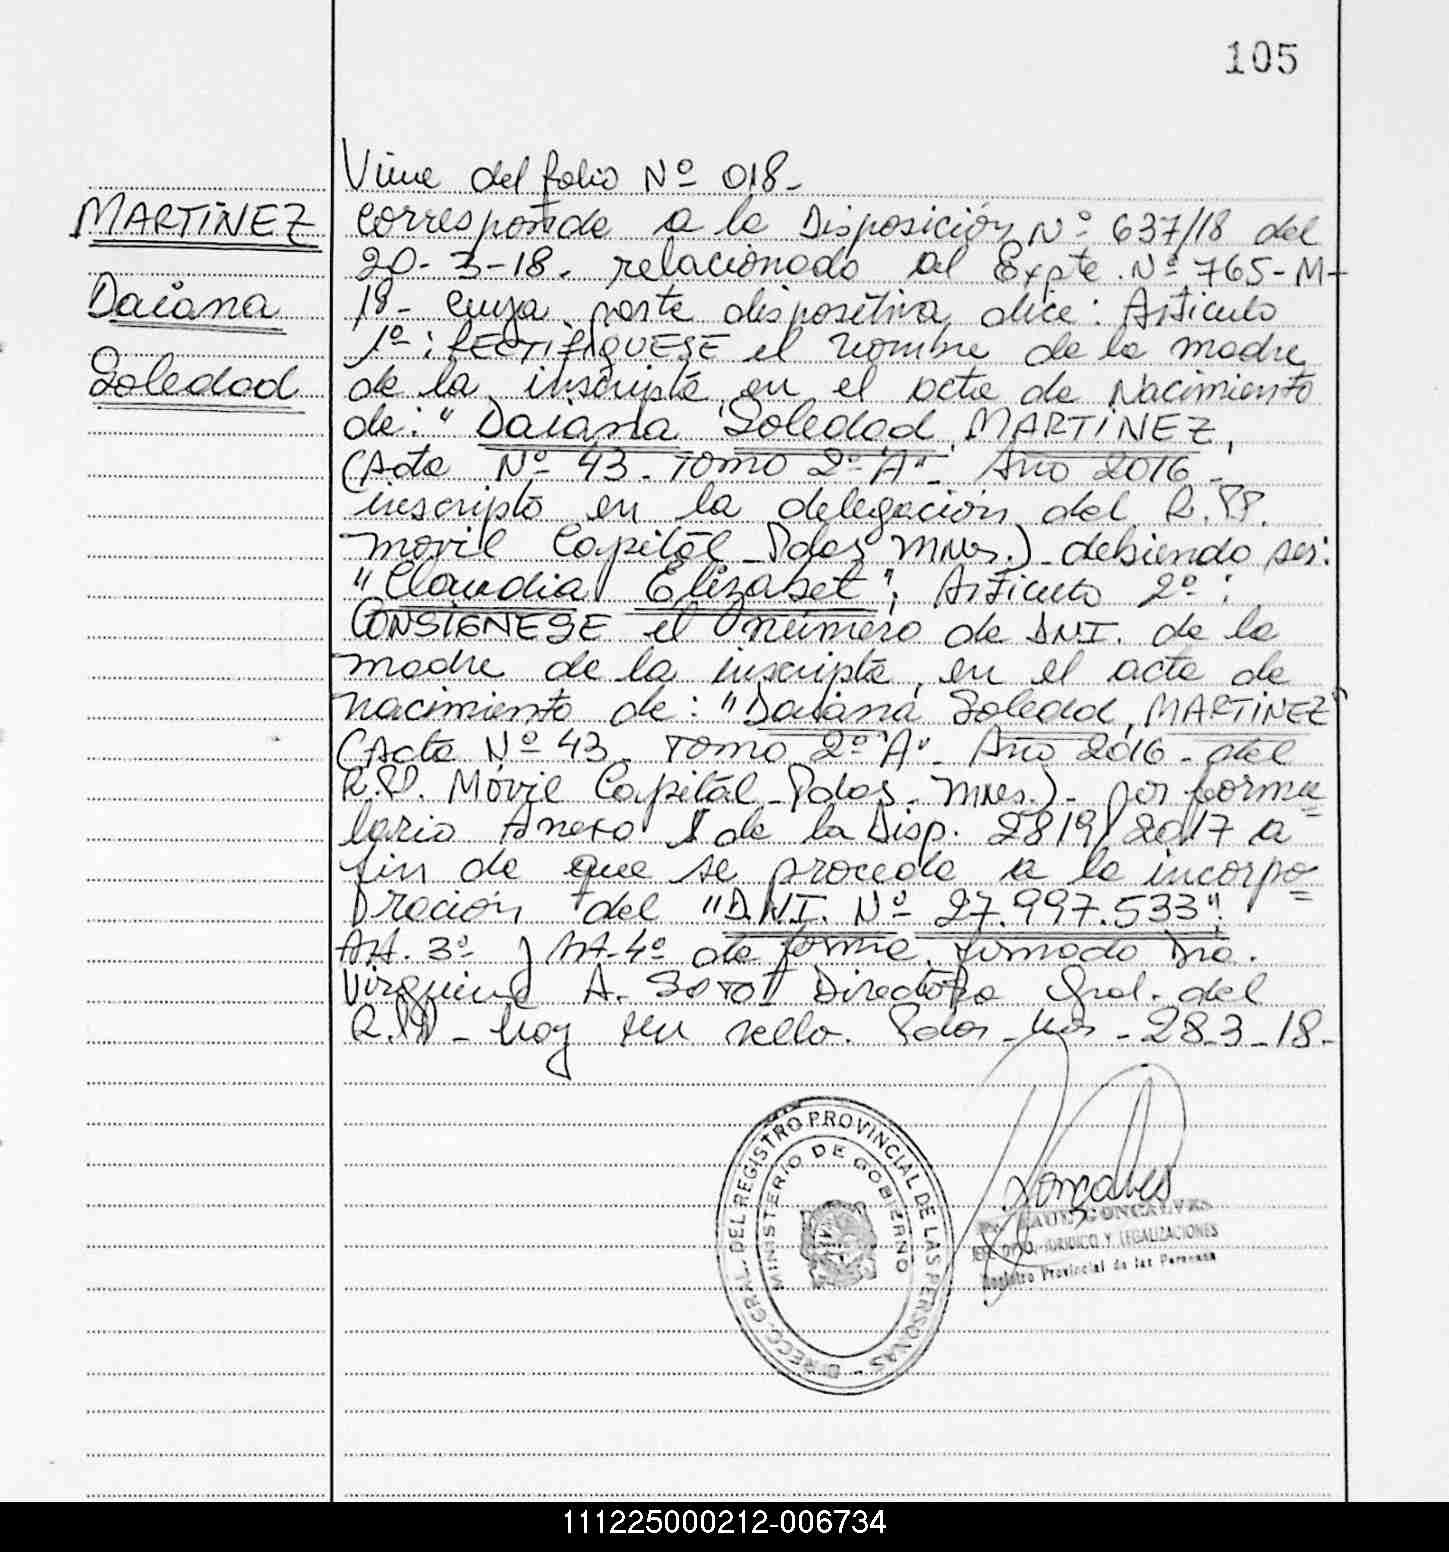 105
Viene del folio Nº 018-
MARTINEZ
Daiana
Soledad
corresponde a la Disposición Nº 637/18 del
20-3-18. relacionado al Expte. Nº 765-M-
18- cuya parte dispositiva dice: Articulo
1º: RECTIFIQUESE el nombre de la madre
de la inscripta en el acta de Nacimiento
de: "Daiana Soledad MARTINEZ,
(Acta Nº 43- Tomo 2º "A"- Año 2016-
inscripta en la delegación del R.P.P.
movil Capital-Pdas Mnes.)- debiendo ser:
"Claudia Elizabet"; Articulo 2º:
CONSIGNESE el número de DNI. de la
madre de la inscripta, en el acta de
nacimiento de: "Daiana Soledad, MARTINEZ"
(Acta Nº 43- Tomo 2º "A"- Año 2016- del
R.P.P. Móvil Capital-Pdas- Mnes.)- por formu=
lario Anexo I de la Disp. 2819/2017 a
fin de que se proceda a la incorpo=
ración del "D.N.I. Nº 27.997.533";
Art. 3º y Art-4º de forma. firmado Dra.
Virginia A. Soto Directora Gral. del
R.P.P- hay un sello. Pdas- Mns -28-3-18-
DIRECC. GRAL. DEL REGISTRO PROVINCIAL DE LAS PERSONAS -
MINISTERIO DE GOBIERNO
GONCALVES
JEFE DPTO. JURIDICO Y LEGALIZACIONES
Registro Provincial de las Personas
111225000212-006734